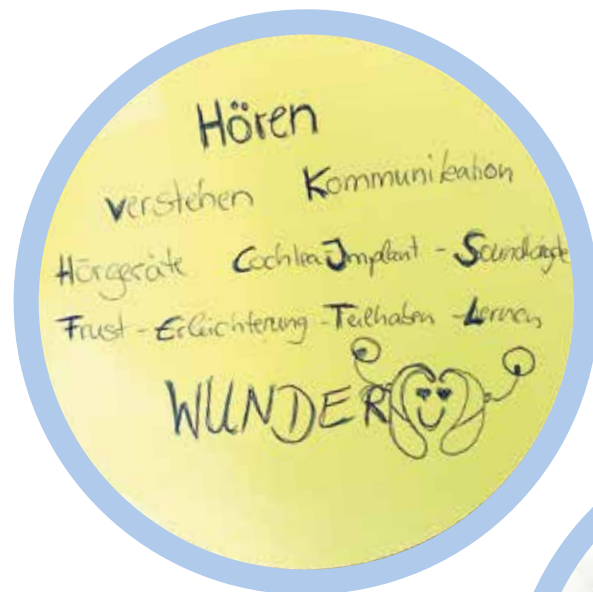 Hören
Verstehen Kommunikation
Hörgeräte Cochlea Implant -
Frust - Erleichterung - Teilhaben - Lernen
WUNDER